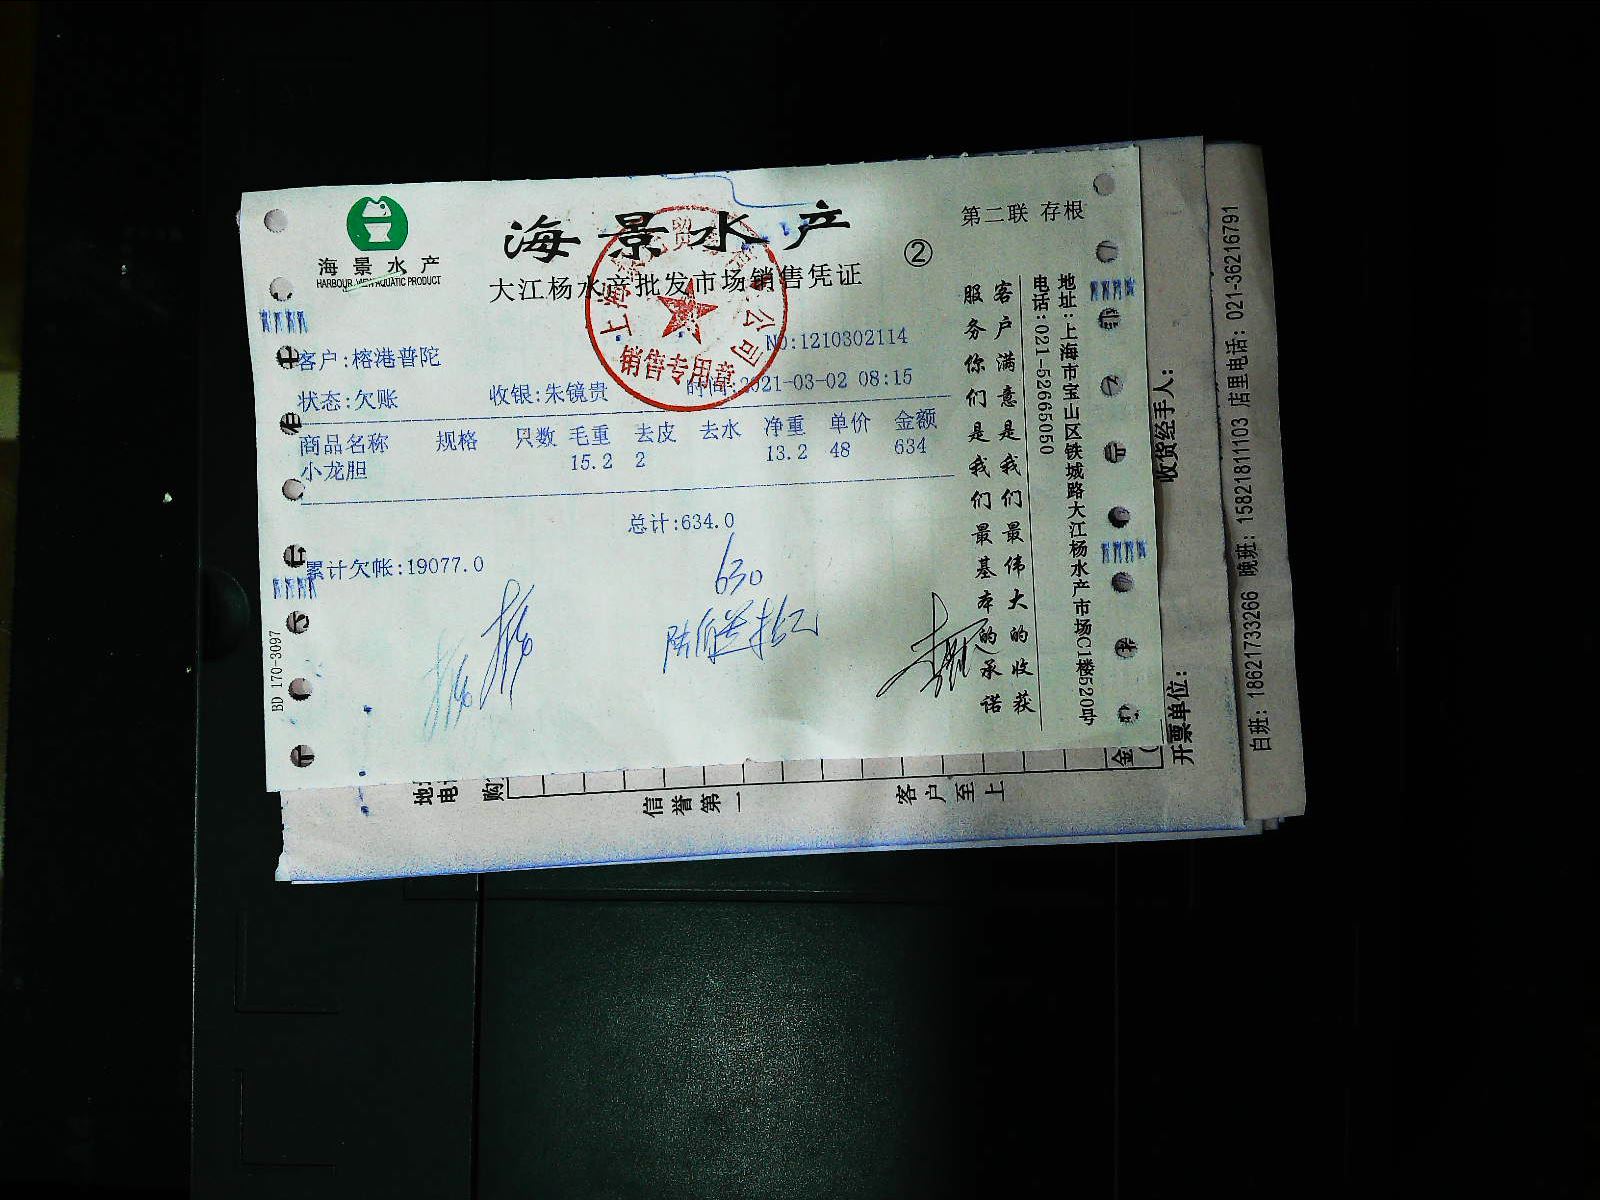 海景水产
HARBOUR VIEW AQUATIC PRODUCT
海景水产
大江杨水产批发市场销售凭证
②
第二联 存根
客户:榕港普陀
NO:1210302114
状态:欠账 收银:朱镜贵 时间:2021-03-02 08:15
商品名称 规格 只数 毛重 去皮 去水 净重 单价 金额
小龙胆 15.2 2 13.2 48 634
总计:634.0
累计欠帐:19077.0
630
BD 170-3097
销售专用章
客户满意是我们最伟大的收获
服务你们是我们最基本的承诺
地址:上海市宝山区铁城路大江杨水产市场C1楼520号
电话:021-52665050
收货经手人:
开票单位:
白班: 18621733266 晚班: 15821811103 店里电话: 021-36216791
信誉第一
客户至上